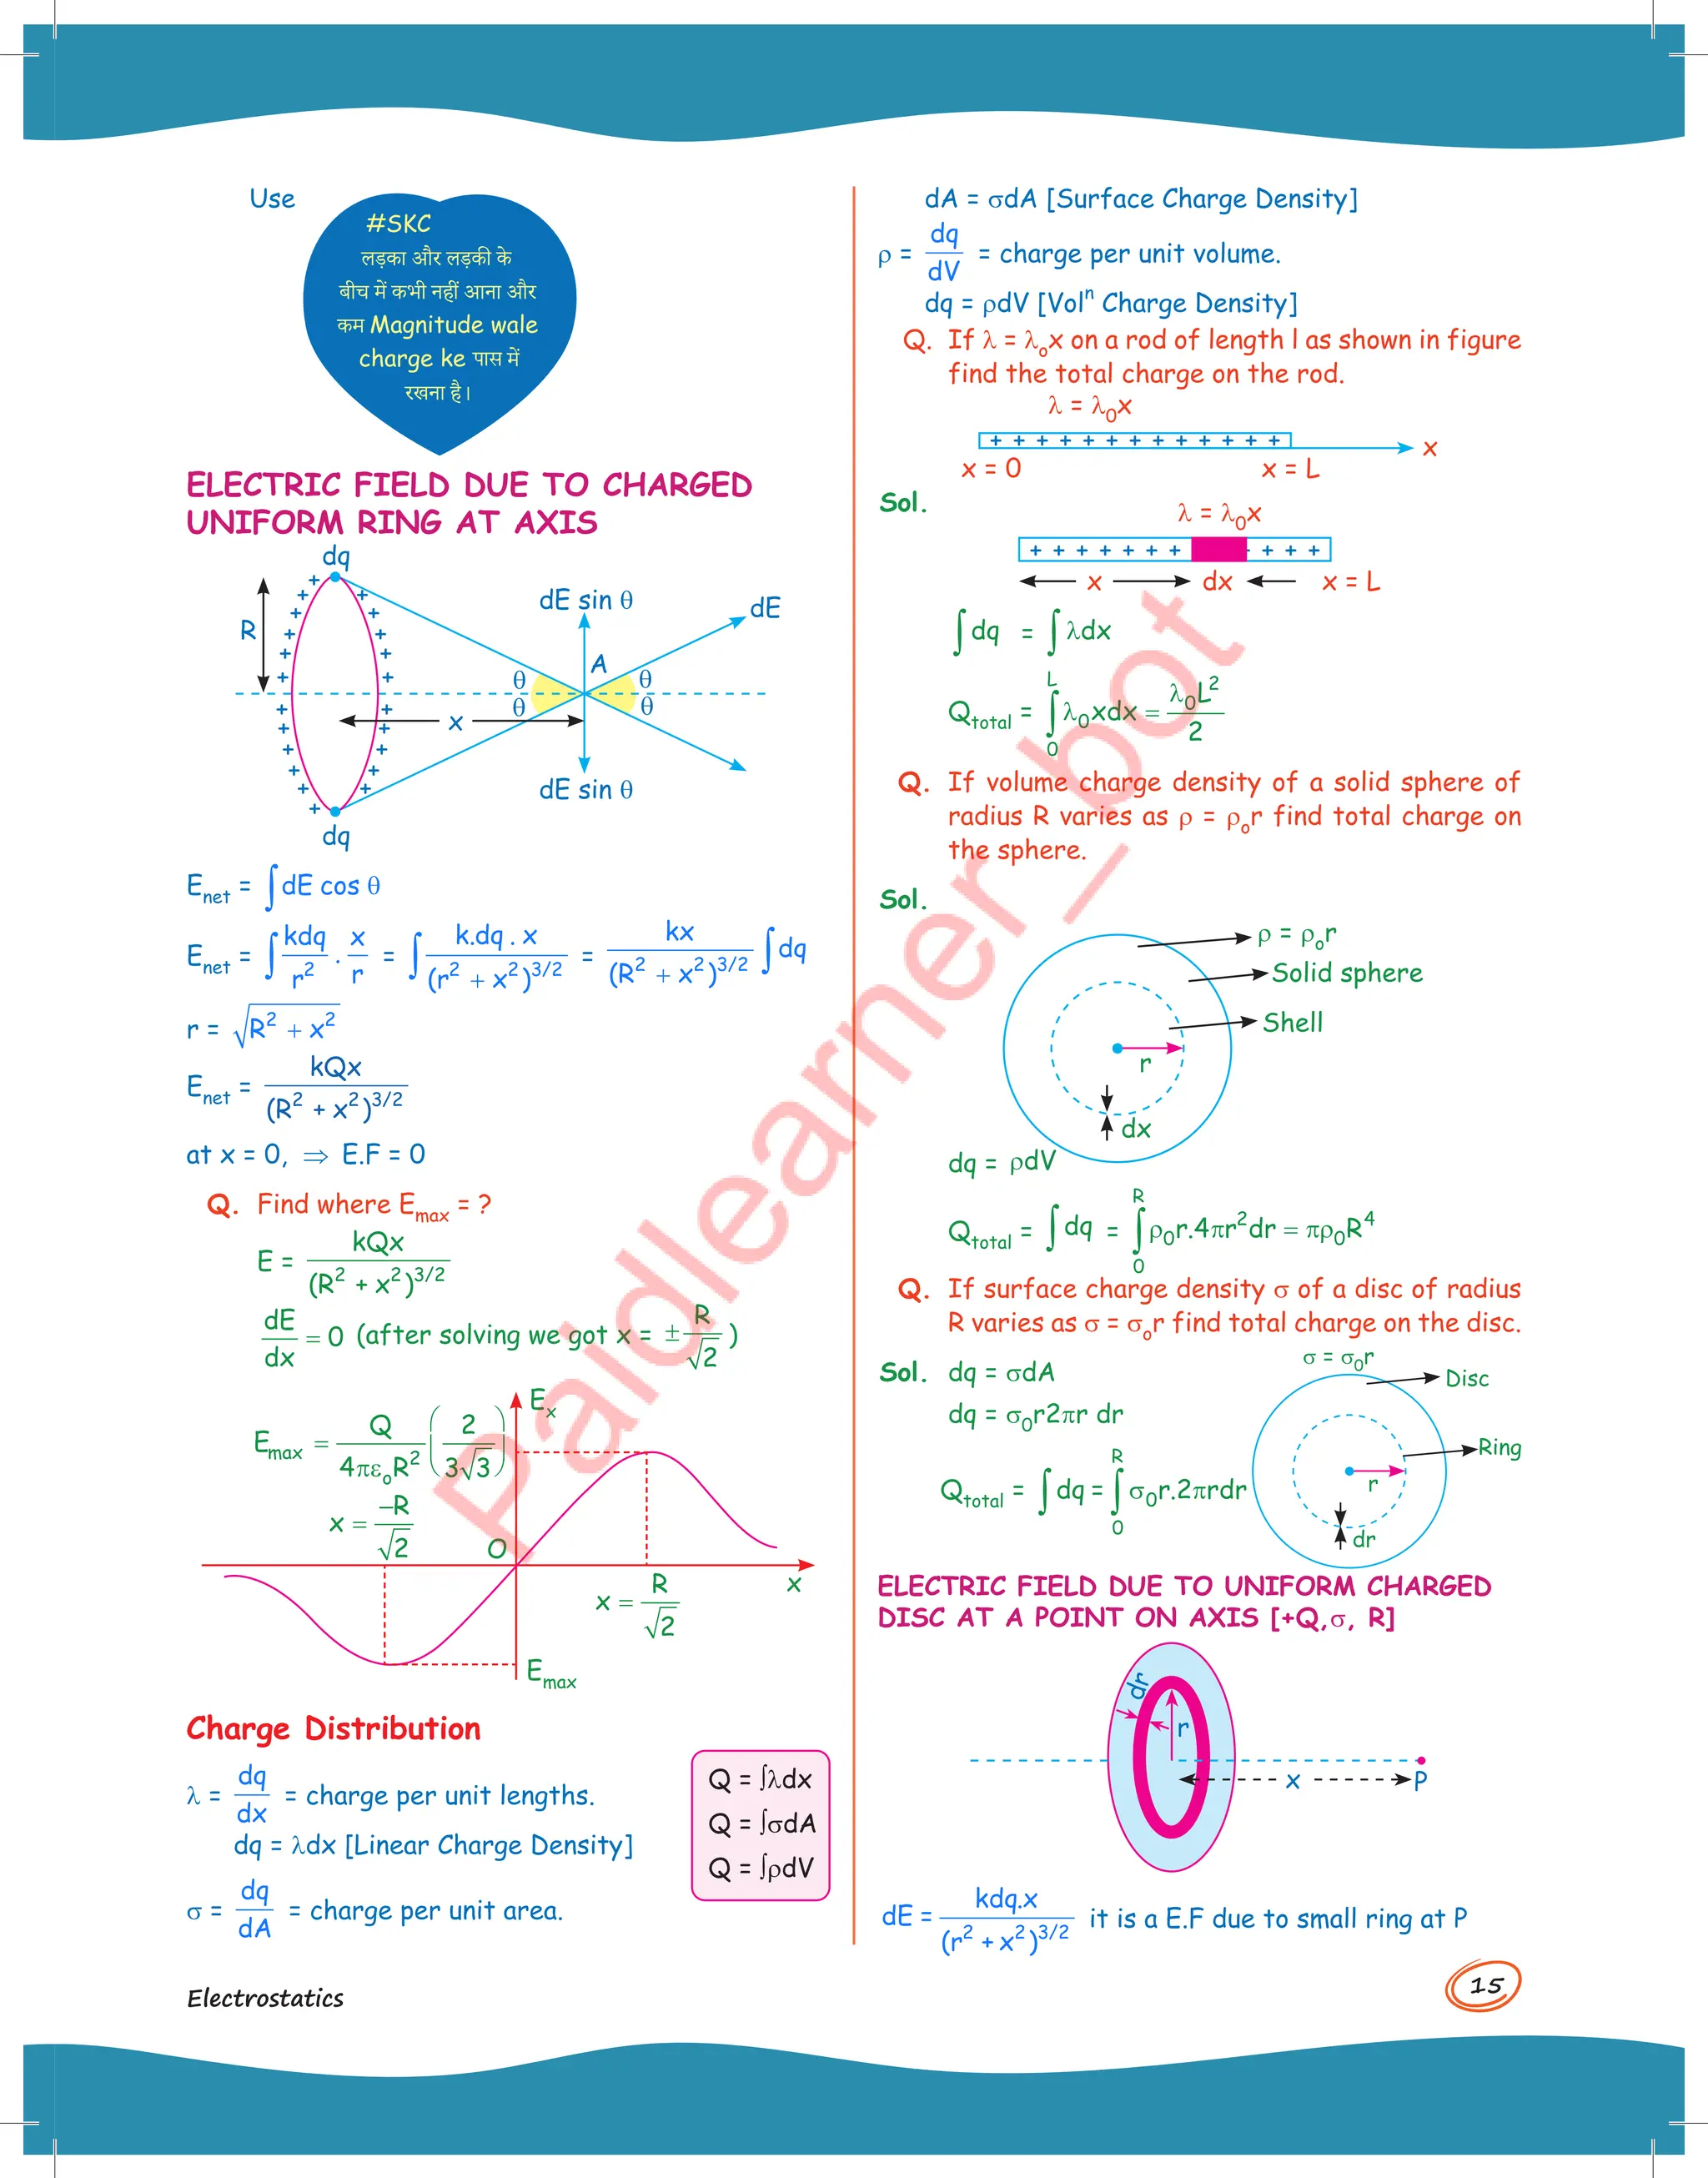 Use
#SKC
लड़का और लड़की के
बीच में कभी नहीं आना और
कम Magnitude wale
charge ke पास में
रखना है।
ELECTRIC FIELD DUE TO CHARGED
UNIFORM RING AT AXIS
dq
R
dE sin θ
dE
A
θ θ
θ θ
x
dE sin θ
dq
E_net = ∫dE cos θ
E_net = ∫ kdq/r² . x/r = ∫ k.dq . x/(r² + x²)^3/2 = kx/(R² + x²)^3/2 ∫dq
r = √(R² + x²)
E_net = kQx/(R² + x²)^3/2
at x = 0, ⇒ E.F = 0
Q. Find where E_max = ?
E = kQx/(R² + x²)^3/2
dE/dx = 0 (after solving we got x = ± R/√2 )
E_x
E_max = Q/4πε_oR² (2/3√3)
x = –R/√2
O
x
x = R/√2
E_max
Charge Distribution
λ = dq/dx = charge per unit lengths.
dq = λdx [Linear Charge Density]
σ = dq/dA = charge per unit area.
Q = ∫λdx
Q = ∫σdA
Q = ∫ρdV
dA = σdA [Surface Charge Density]
ρ = dq/dV = charge per unit volume.
dq = ρdV [Volⁿ Charge Density]
Q. If λ = λ_ox on a rod of length l as shown in figure
find the total charge on the rod.
λ = λ₀x
+ + + + + + + + + + + + +
x
x = 0 x = L
Sol.
λ = λ₀x
+ + + + + + + + + +
x dx x = L
∫dq = ∫λdx
Q_total = ∫₀^L λ₀xdx = λ₀L²/2
Q. If volume charge density of a solid sphere of
radius R varies as ρ = ρ_or find total charge on
the sphere.
Sol.
ρ = ρ_or
Solid sphere
Shell
r
dx
dq = ρdV
Q_total = ∫dq = ∫₀^R ρ₀r.4πr²dr = πρ₀R⁴
Q. If surface charge density σ of a disc of radius
R varies as σ = σ_or find total charge on the disc.
Sol. dq = σdA
dq = σ₀r2πr dr
Q_total = ∫dq = ∫₀^R σ₀r.2πrdr
σ = σ₀r
Disc
Ring
r
dr
ELECTRIC FIELD DUE TO UNIFORM CHARGED
DISC AT A POINT ON AXIS [+Q,σ, R]
dr
r
x
P
dE = kdq.x/(r² + x²)^3/2 it is a E.F due to small ring at P
Electrostatics
15
Paidlearner_bot